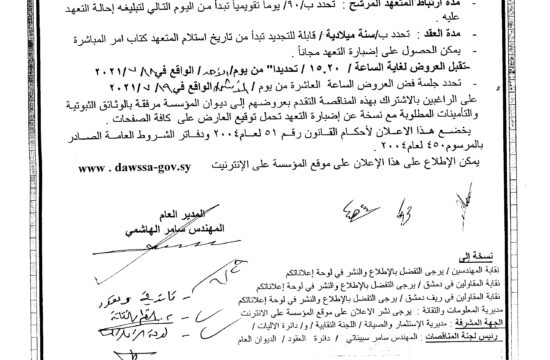 مدة ارتباط المتعهد المرشح : تحدد ب/٩٠/ يوماً تقويمياً تبدأ من اليوم التالي لتبليغه إحالة التعهد
عليه .
مدة العقد : تحدد ب/سنة ميلادية / قابلة للتجديد تبدأ من تاريخ استلام المتعهد كتاب امر المباشرة
يمكن الحصول على إضبارة التعهد مجاناً .
-تقبل العروض لغاية الساعة / ١٥,٢٠ / تحديداً" من يوم/الأحد/ الواقع في ٢٠٢١/٧/١٨
تحدد جلسة فض العروض الساعة العاشرة من يوم / الواقع في ٢٠٢١/٧/١٩
على الراغبين بالاشتراك بهذه المناقصة التقدم بعروضهم إلى ديوان المؤسسة مرفقة بالوثائق الثبوتية
والتأمينات المطلوبة مع نسخة عن إضبارة التعهد تحمل توقيع العارض على كافة الصفحات .
يخضع هذا الاعلان لأحكام القانون رقم ٥١ لعام ٢٠٠٤ ودفاتر الشروط العامة الصادر
بالمرسوم ٤٥٠ لعام ٢٠٠٤
يمكن الإطلاع على هذا الإعلان على موقع المؤسسة على الإنترنيت www . dawssa-gov.sy
المدير العام
المهندس سامر الهاشمي
نسخة إلى
نقابة المهندسين / يرجى التفضل بالإطلاع والنشر في لوحة إعلاناتكم
نقابة المقاولين في دمشق / يرجى التفضل بالإطلاع والنشر في لوحة إعلاناتكم
نقابة المقاولين في ريف دمشق / يرجى التفضل بالإطلاع والنشر في لوحة إعلاناتكم
مديرية المعلومات والتقانة : يرجى نشر الاعلان على موقع المؤسسة على الانترنت
الجهة المشرفة : مديرية الإستثمار والصيانة / اللجنة النقابية / و/ دائرة الاليات /
رئيس لجنة المناقصات : المهندس سامر سبيناتي / دائرة العقود / الديوان العام